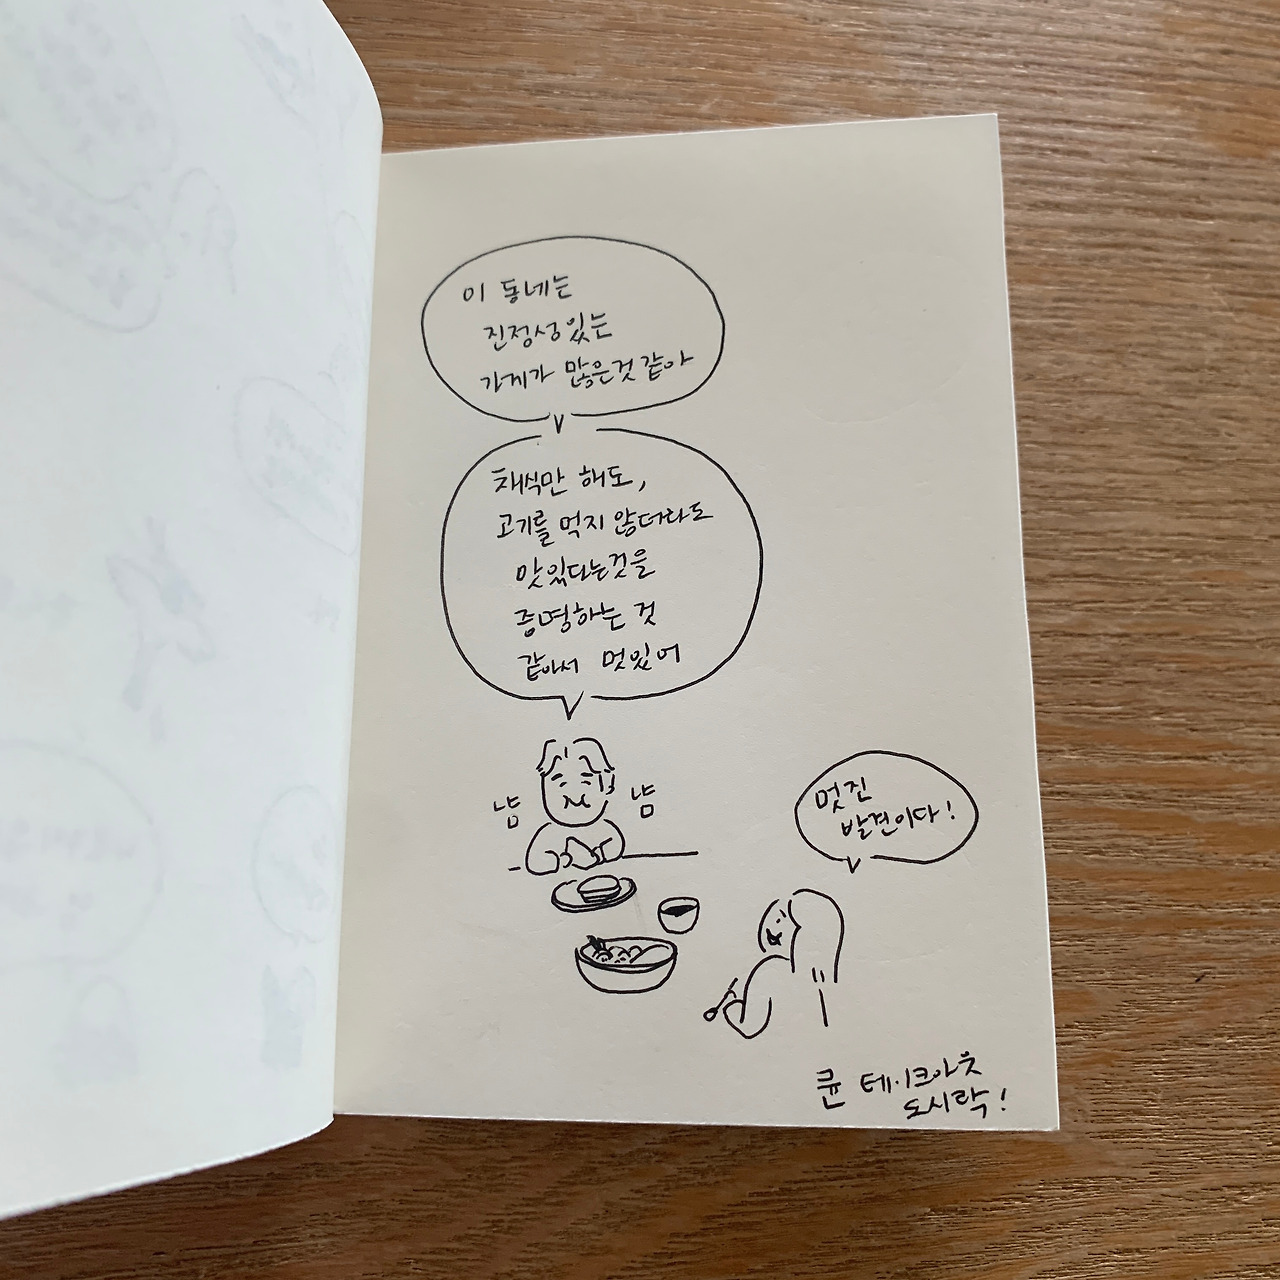 이 동네는
진정성있는
가게가 많은것 같아
채식만 해도,
고기를 먹지 않더라도
맛있다는것을
증명하는 것
같아서 멋있어
냠
냠
멋진
발견이다!
큔 테이크아웃
도시락!